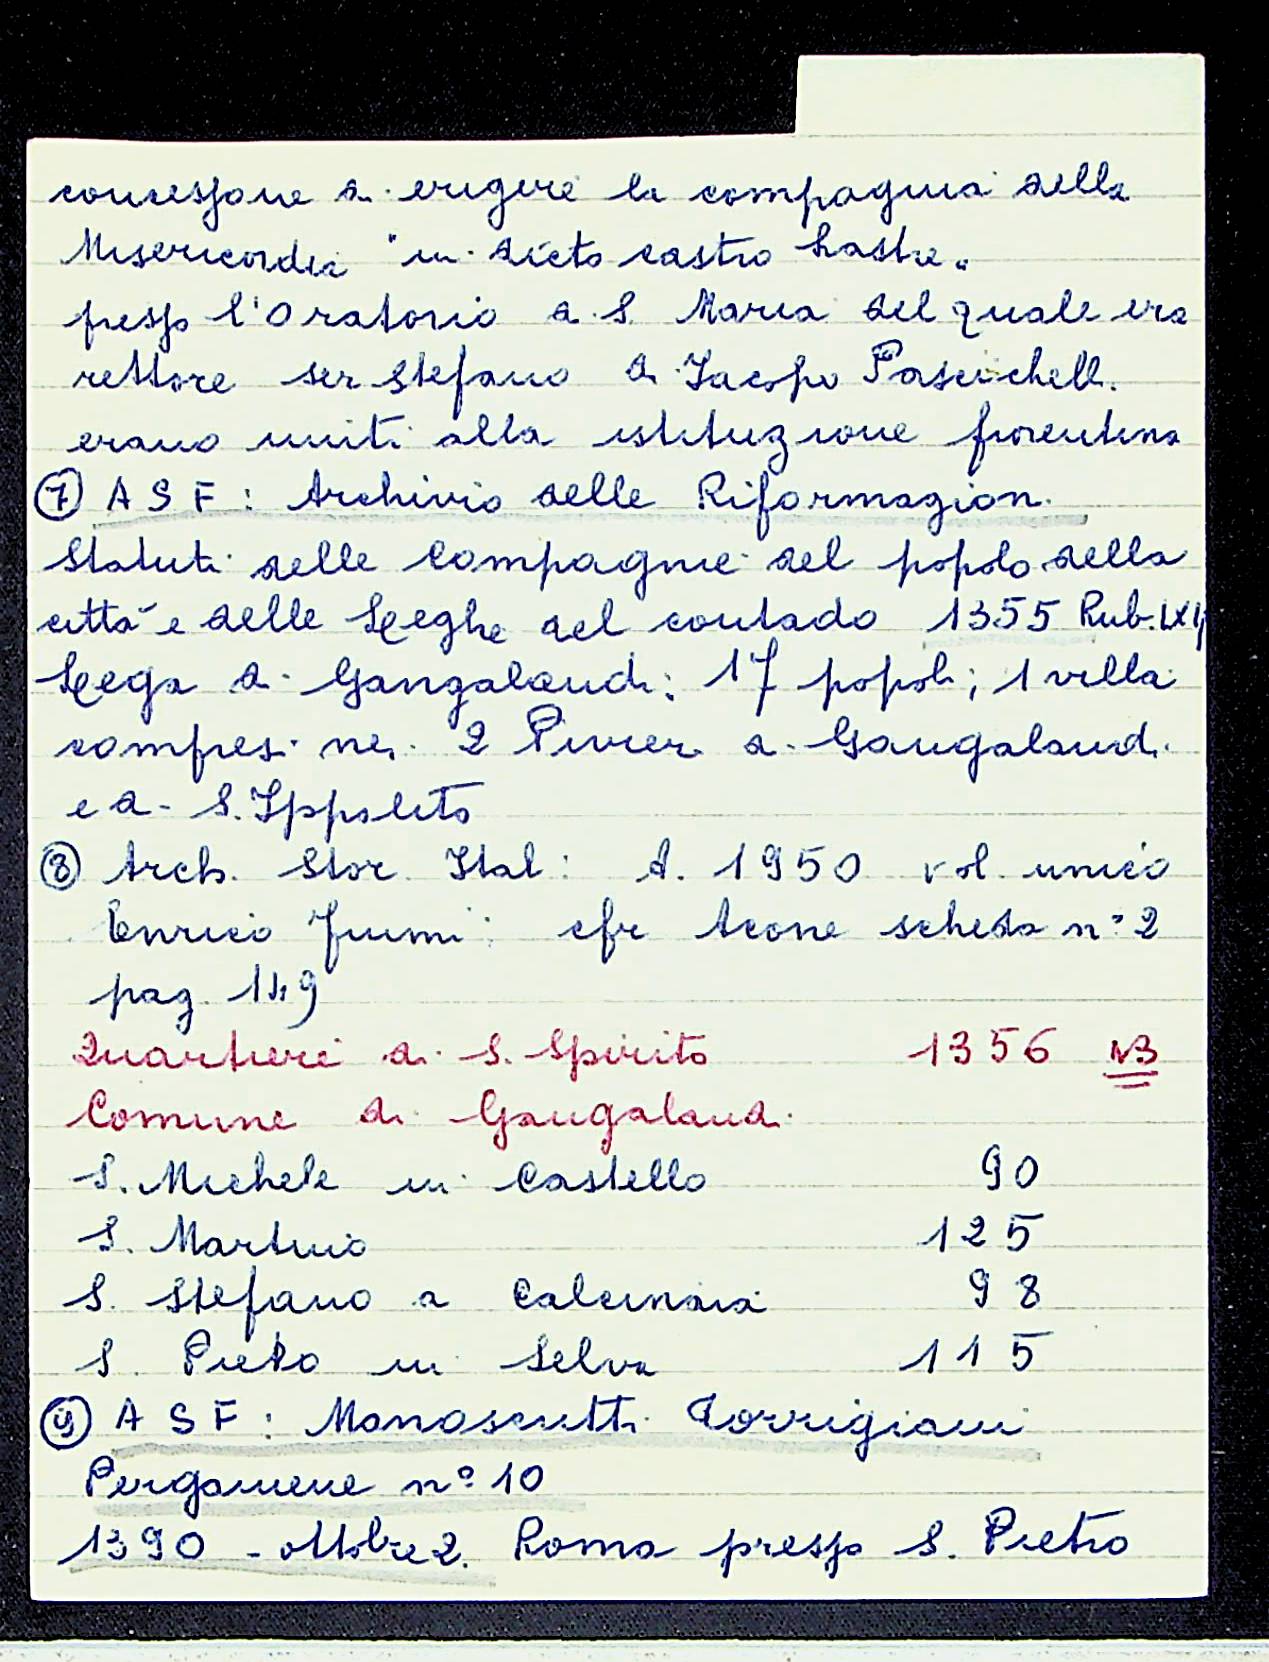 concessione di erigere la compagnia della
Misericordia "in dicto castro Lastre"
presso l'Oratorio di S. Maria del quale era
rettore ser Stefano di Jacopo
erano uniti alla istituzione fiorentina
⑦ ASF: Archivio delle Riformagioni
Statuti delle Compagnie del popolo della
città e delle Leghe del contado 1355 Rub.
Lega di Gangalandi: 17 popoli; 1 villa
compresi nei 2 Pivieri di Gangalandi
e di S. Ippolito
⑧ Arch. Stor. Ital: A. 1950 vol. unico
Enrico Fiumi: cfr Leone scheda n° 2
pag. 149
Quartiere di S. Spirito 1356 NB
Comune di Gangalandi
S. Michele in Castello 90
S. Martino 125
S. Stefano a Calcinaia 98
S. Pietro in Selva 115
⑨ ASF: Manoscritti Torrigiani
Pergamene n° 10
1390 - ottobre 2. Roma presso S. Pietro